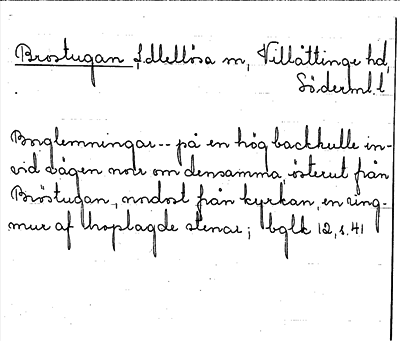 Brostugan, Mellösa sn, Villåttinge hd,
Söderml. l.
Borglemningar -- på en hög backkulle in-
vid vägen norr om densamma, österut från
Bröstugan, nordost från kyrkan, en ring-
mur af hoplagde stenar; bglk 12, s. 41